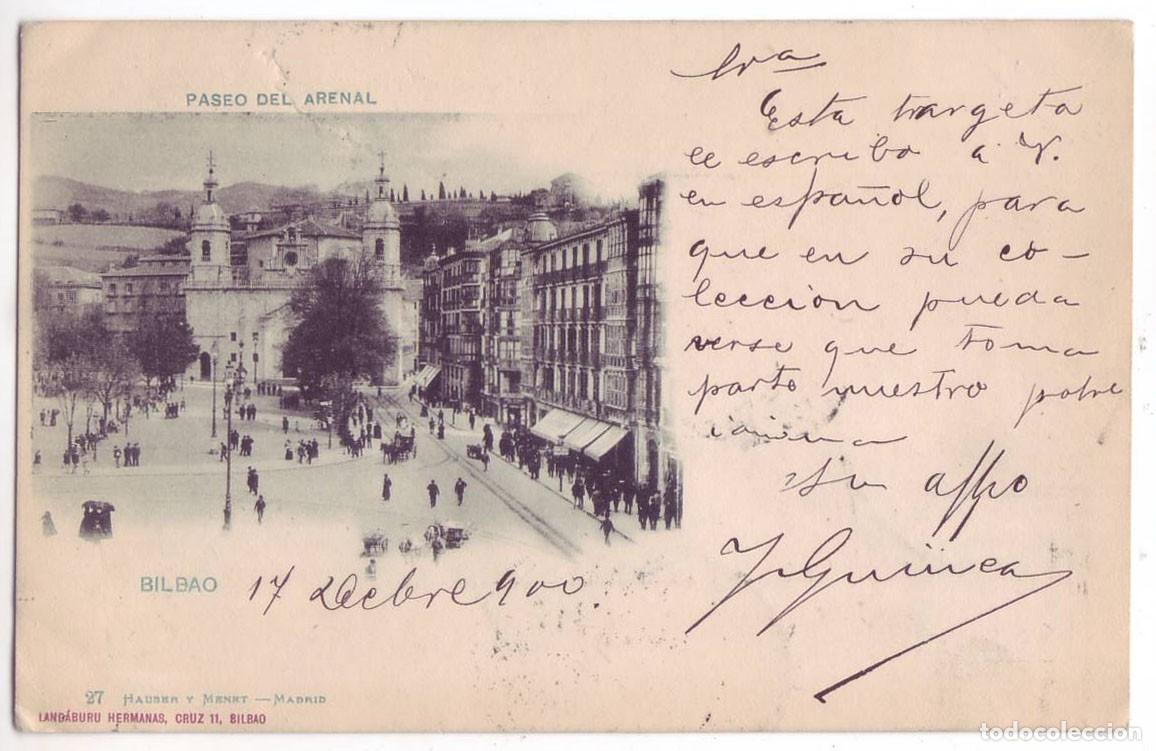 PASEO DEL ARENAL
Sra
Esta targeta
le escribo á V.
en español, para
que en su co-
lección pueda
verse que toma
parte nuestro pobre
idioma
Su affmo
BILBAO 17 Dbre 900.
27 HAUSER Y MENET — MADRID
LANDÁBURU HERMANAS, CRUZ 11, BILBAO
todocoleccion